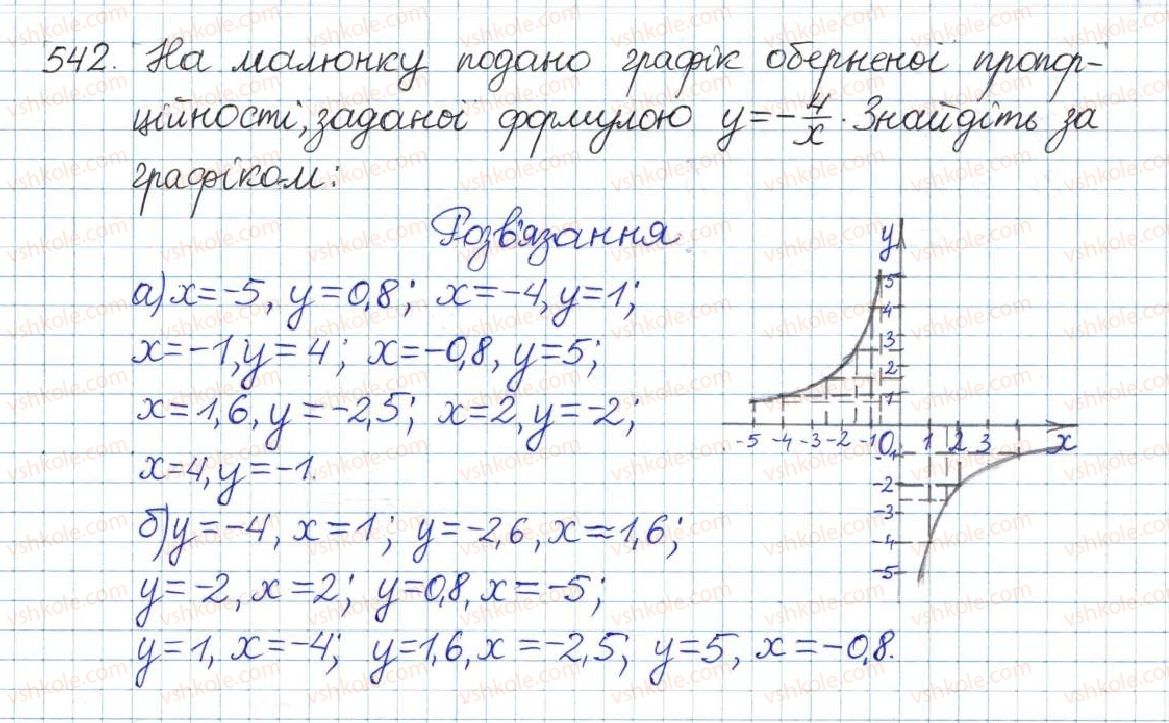 542. На малюнку подано графік оберненої пропор-
ційності, заданої формулою y=-4/x. Знайдіть за
графіком:
Розв'язання
а) x=-5, y=0,8; x=-4, y=1;
x=-1, y=4; x=-0,8, y=5;
x=1,6, y=-2,5; x=2, y=-2;
x=4, y=-1.
б) y=-4, x=1; y=-2,6, x≈1,6;
y=-2, x=2; y=0,8, x=-5;
y=1, x=-4; y=1,6, x=-2,5; y=5, x=-0,8.
y
5
4
3
2
1
-5 -4 -3 -2 -1 0 1 2 3 x
-1
-2
-3
-4
-5
vshkole.com